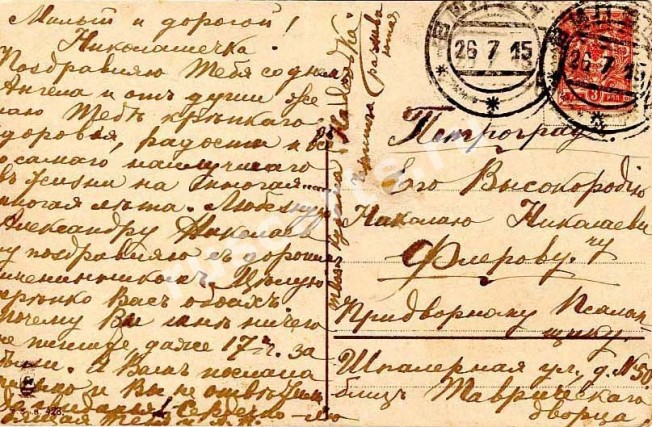 Милый и дорогой!
Николашечка.
Поздравляю Тебя со днем
Ангела и отъ души же
лаю Тебѣ крѣпкаго
здоровья, радости и все
го самаго наилучшаго
въ жизни на многая
многая лѣта. Милому
Александру Николаев
чу поздравляю съ дорогим
именинникомъ. Цѣлую
крѣпко Васъ обоихъ
почему Вы мнѣ ничего
не пишите даже 17го за
были. Я Вамъ послала
и Вы не отвѣтили
До свиданья! Сердечно
Тебя
твоя
26 7 15
26 7 15
Петроградъ.
Его Высокородію
Николаю Николаеви
чу
Флерову.
Придворному Псалом
щику.
Шпалерная ул. д. № 50
близъ Таврическаго
дворца